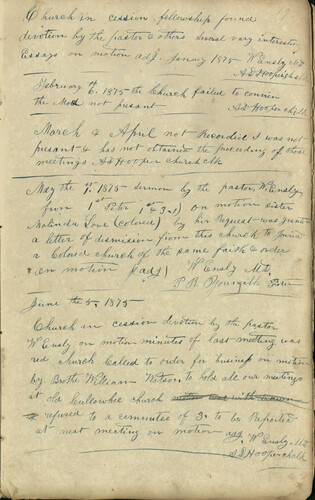 Church in cession fellowship found
devotion by the pastor & others several very interesting
Essays on motion adj. January 1875 W Ensly Md
A D Hooper ch clk
February 6, 1875 the Church failed to convien
the Mod not presant A D Hooper ch clk
March & April not Recorded I was not
presant & has not obtained the preceeding of those
meetings A D Hooper church clk
May the 1875 Sermon by the pastor, W Ensly
from 1st Peter 1st & 3rd) on motion sister
Malinda Love (colored) by her request was granted
a letter of dismission from this church to joind
a Colored church of the same faith & order
on motion (adj) W Ensly Md,
June the 5th 1875
Church in cession devotion by the pastor
W Ensly on motion minutes of last meeting was
red church called to order for business on motion
by Brother William Wilson, to hold all our meetings
at old Cullowhee church
refered to a committee of 3 to be Reported
at next meeting on motion adj. W Ensly Md
A D Hooper ch clk